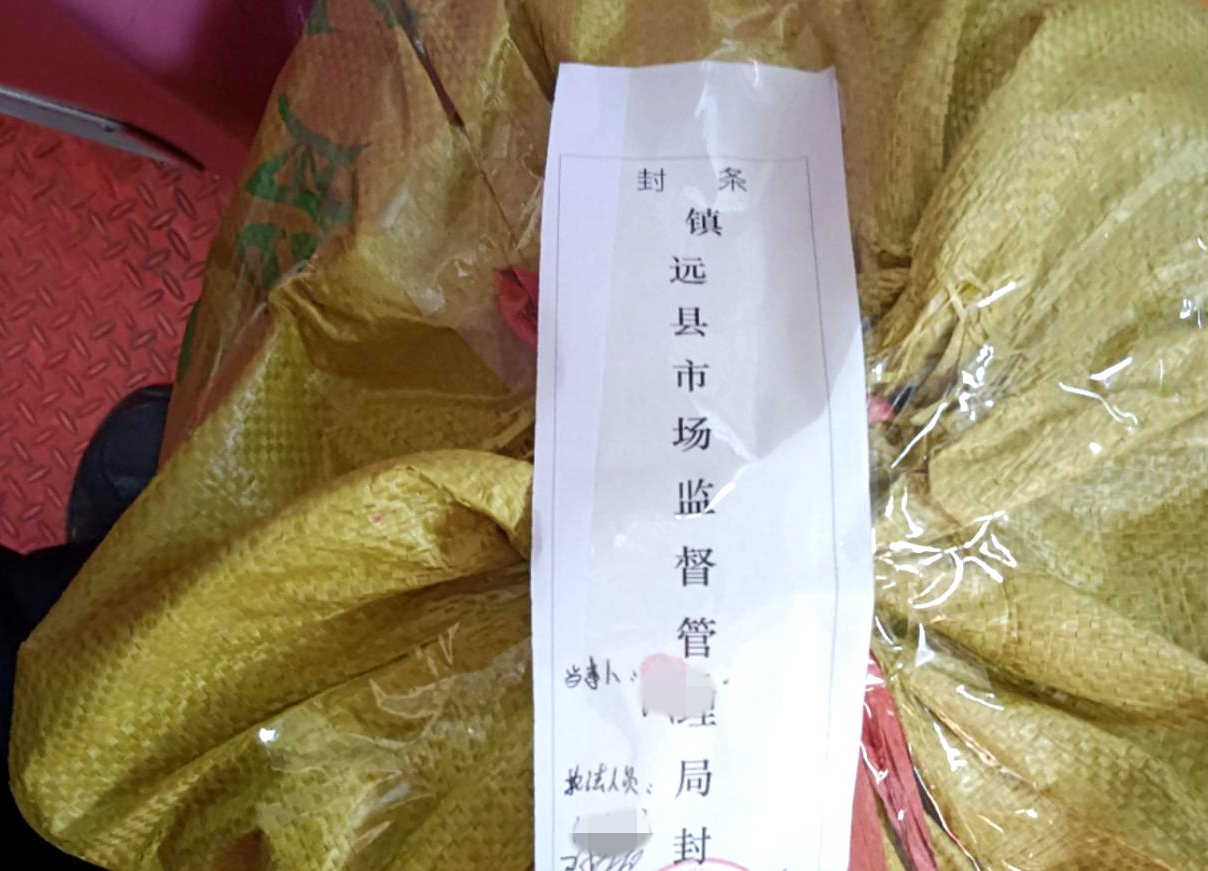 封 条
镇远县市场监督管理局封
当事人：
执法人员：